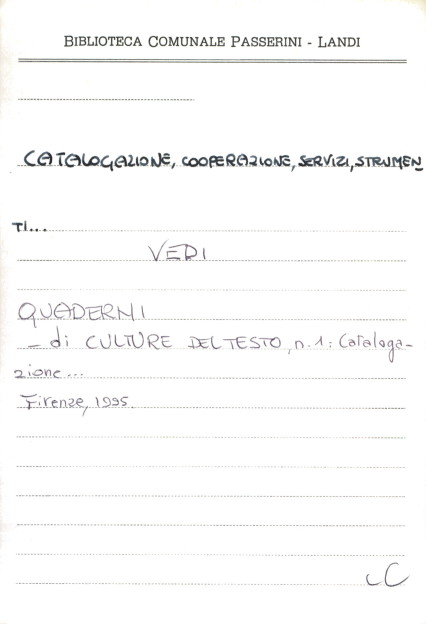 BIBLIOTECA COMUNALE PASSERINI - LANDI
CATALOGAZIONE, COOPERAZIONE, SERVIZI, STRUMEN
TI...
VEDI
QUADERNI
- di CULTURE DEL TESTO, n. 1: Cataloga-
zione...
Firenze, 1995.
CC